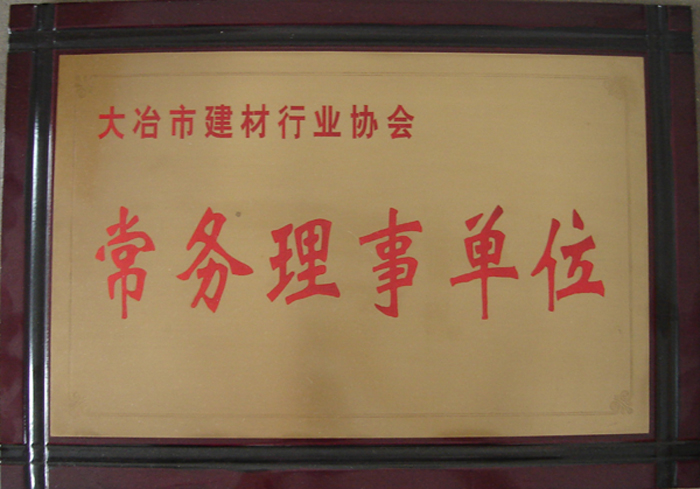 大冶市建材行业协会
常务理事单位